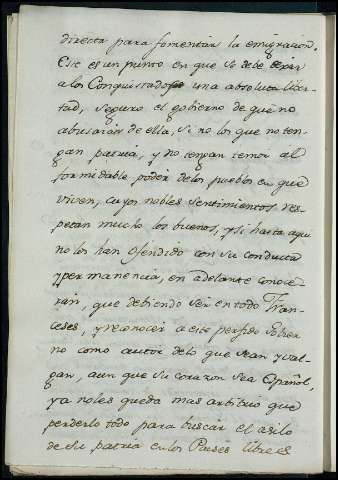 directa para fomentar la emigracion.
Este es un punto en que se debe dexar
a los Conquistados una absoluta liber-
tad, seguro el gobierno de que no
abusarán de ella, si no los que no ten-
gan patria, y no tengan temor al
formidable poder de los pueblos en que
viven, cuyos nobles sentimientos res-
petan mucho los buenos, y si hasta aqui
no los han ofendido con su conducta
y permanencia, en adelante conoce-
rán, que debiendo ser en todo Fran-
ceses, y reconocer a este perfido Gobier
no como autor de lo que sean y val-
gan, aun que su corazon sea Español,
ya no les queda mas arbitrio que
perderlo todo para buscar el asilo
de su patria en los Paises libres